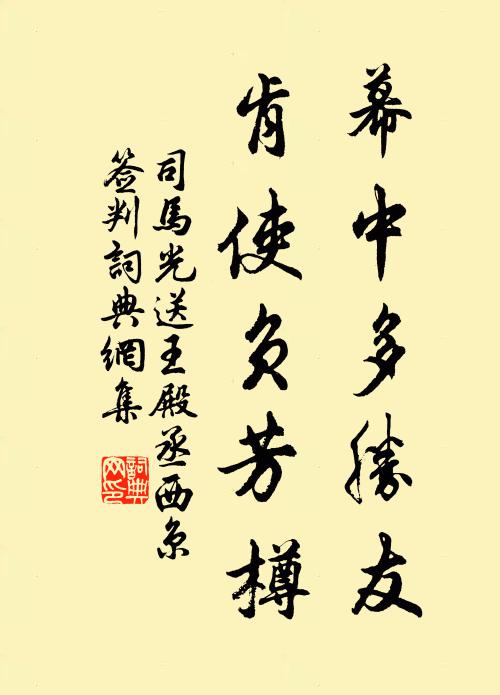 幕中多勝友
肯使負芳樽
司馬光送王殿丞西京
簽判詞典網集
詞典网印